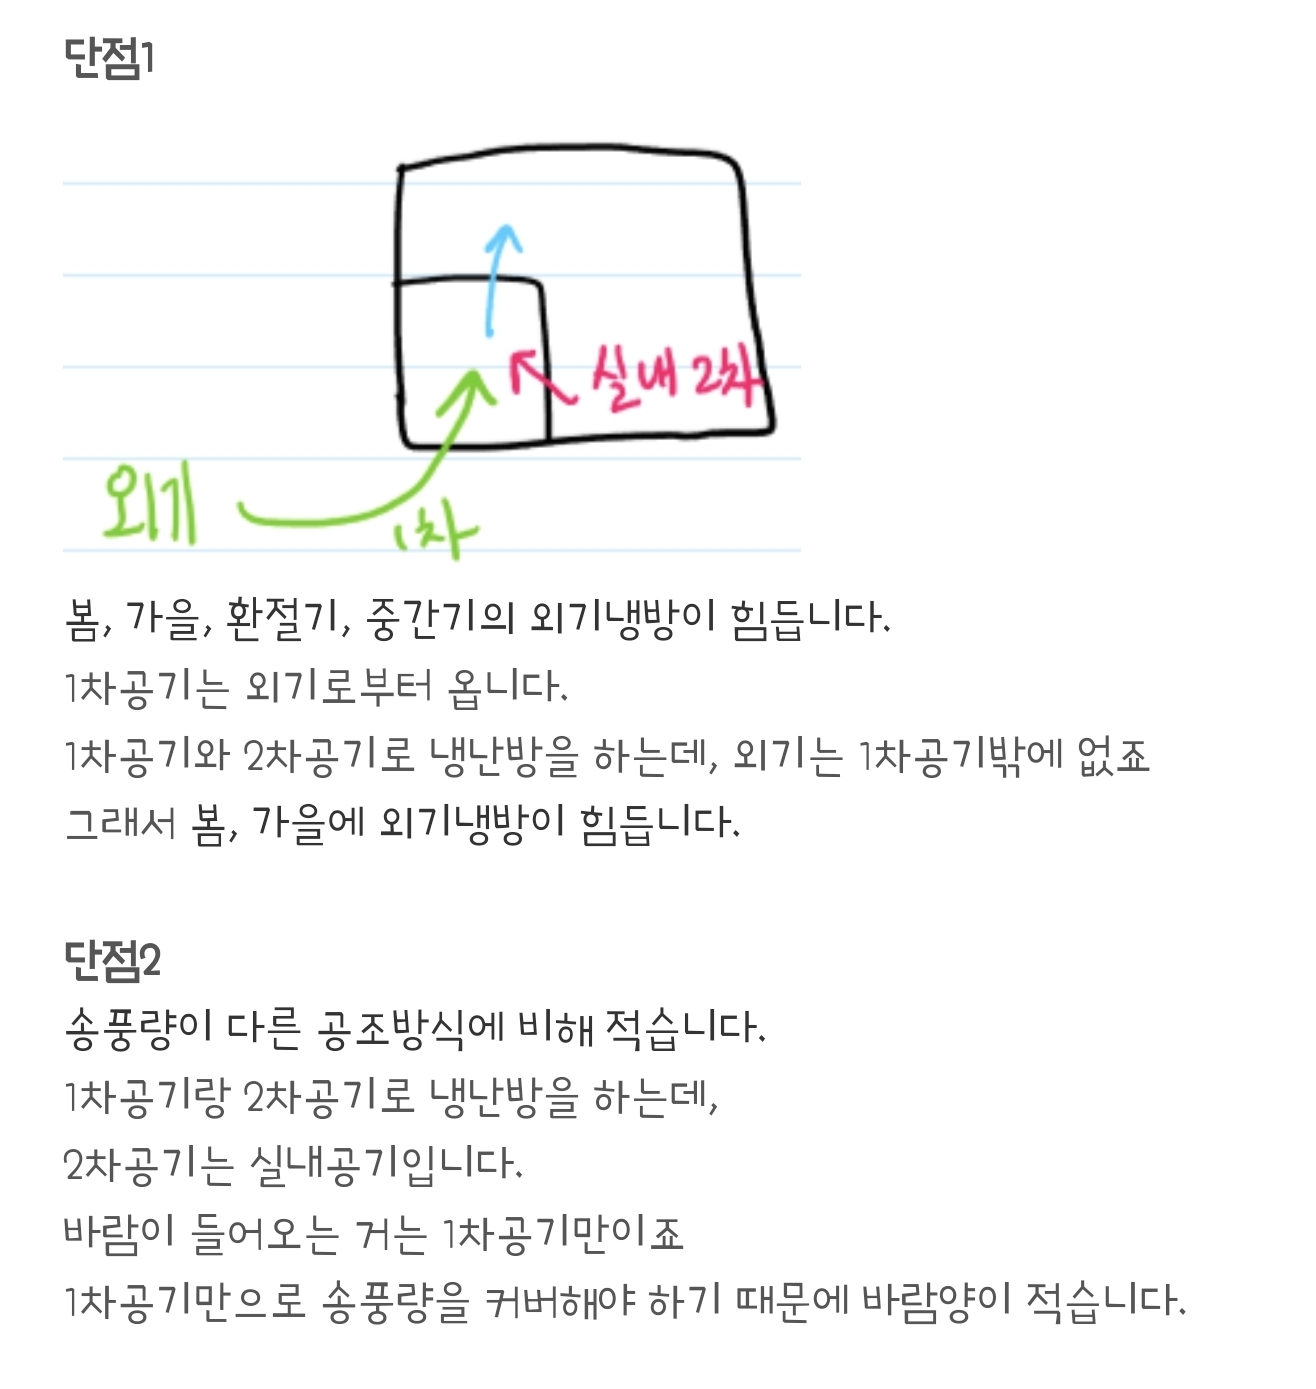 단점1
실내 2차
외기
1차
봄, 가을, 환절기, 중간기의 외기냉방이 힘듭니다.
1차공기는 외기로부터 옵니다.
1차공기와 2차공기로 냉난방을 하는데, 외기는 1차공기밖에 없죠
그래서 봄, 가을에 외기냉방이 힘듭니다.
단점2
송풍량이 다른 공조방식에 비해 적습니다.
1차공기랑 2차공기로 냉난방을 하는데,
2차공기는 실내공기입니다.
바람이 들어오는 거는 1차공기만이죠
1차공기만으로 송풍량을 커버해야 하기 때문에 바람양이 적습니다.